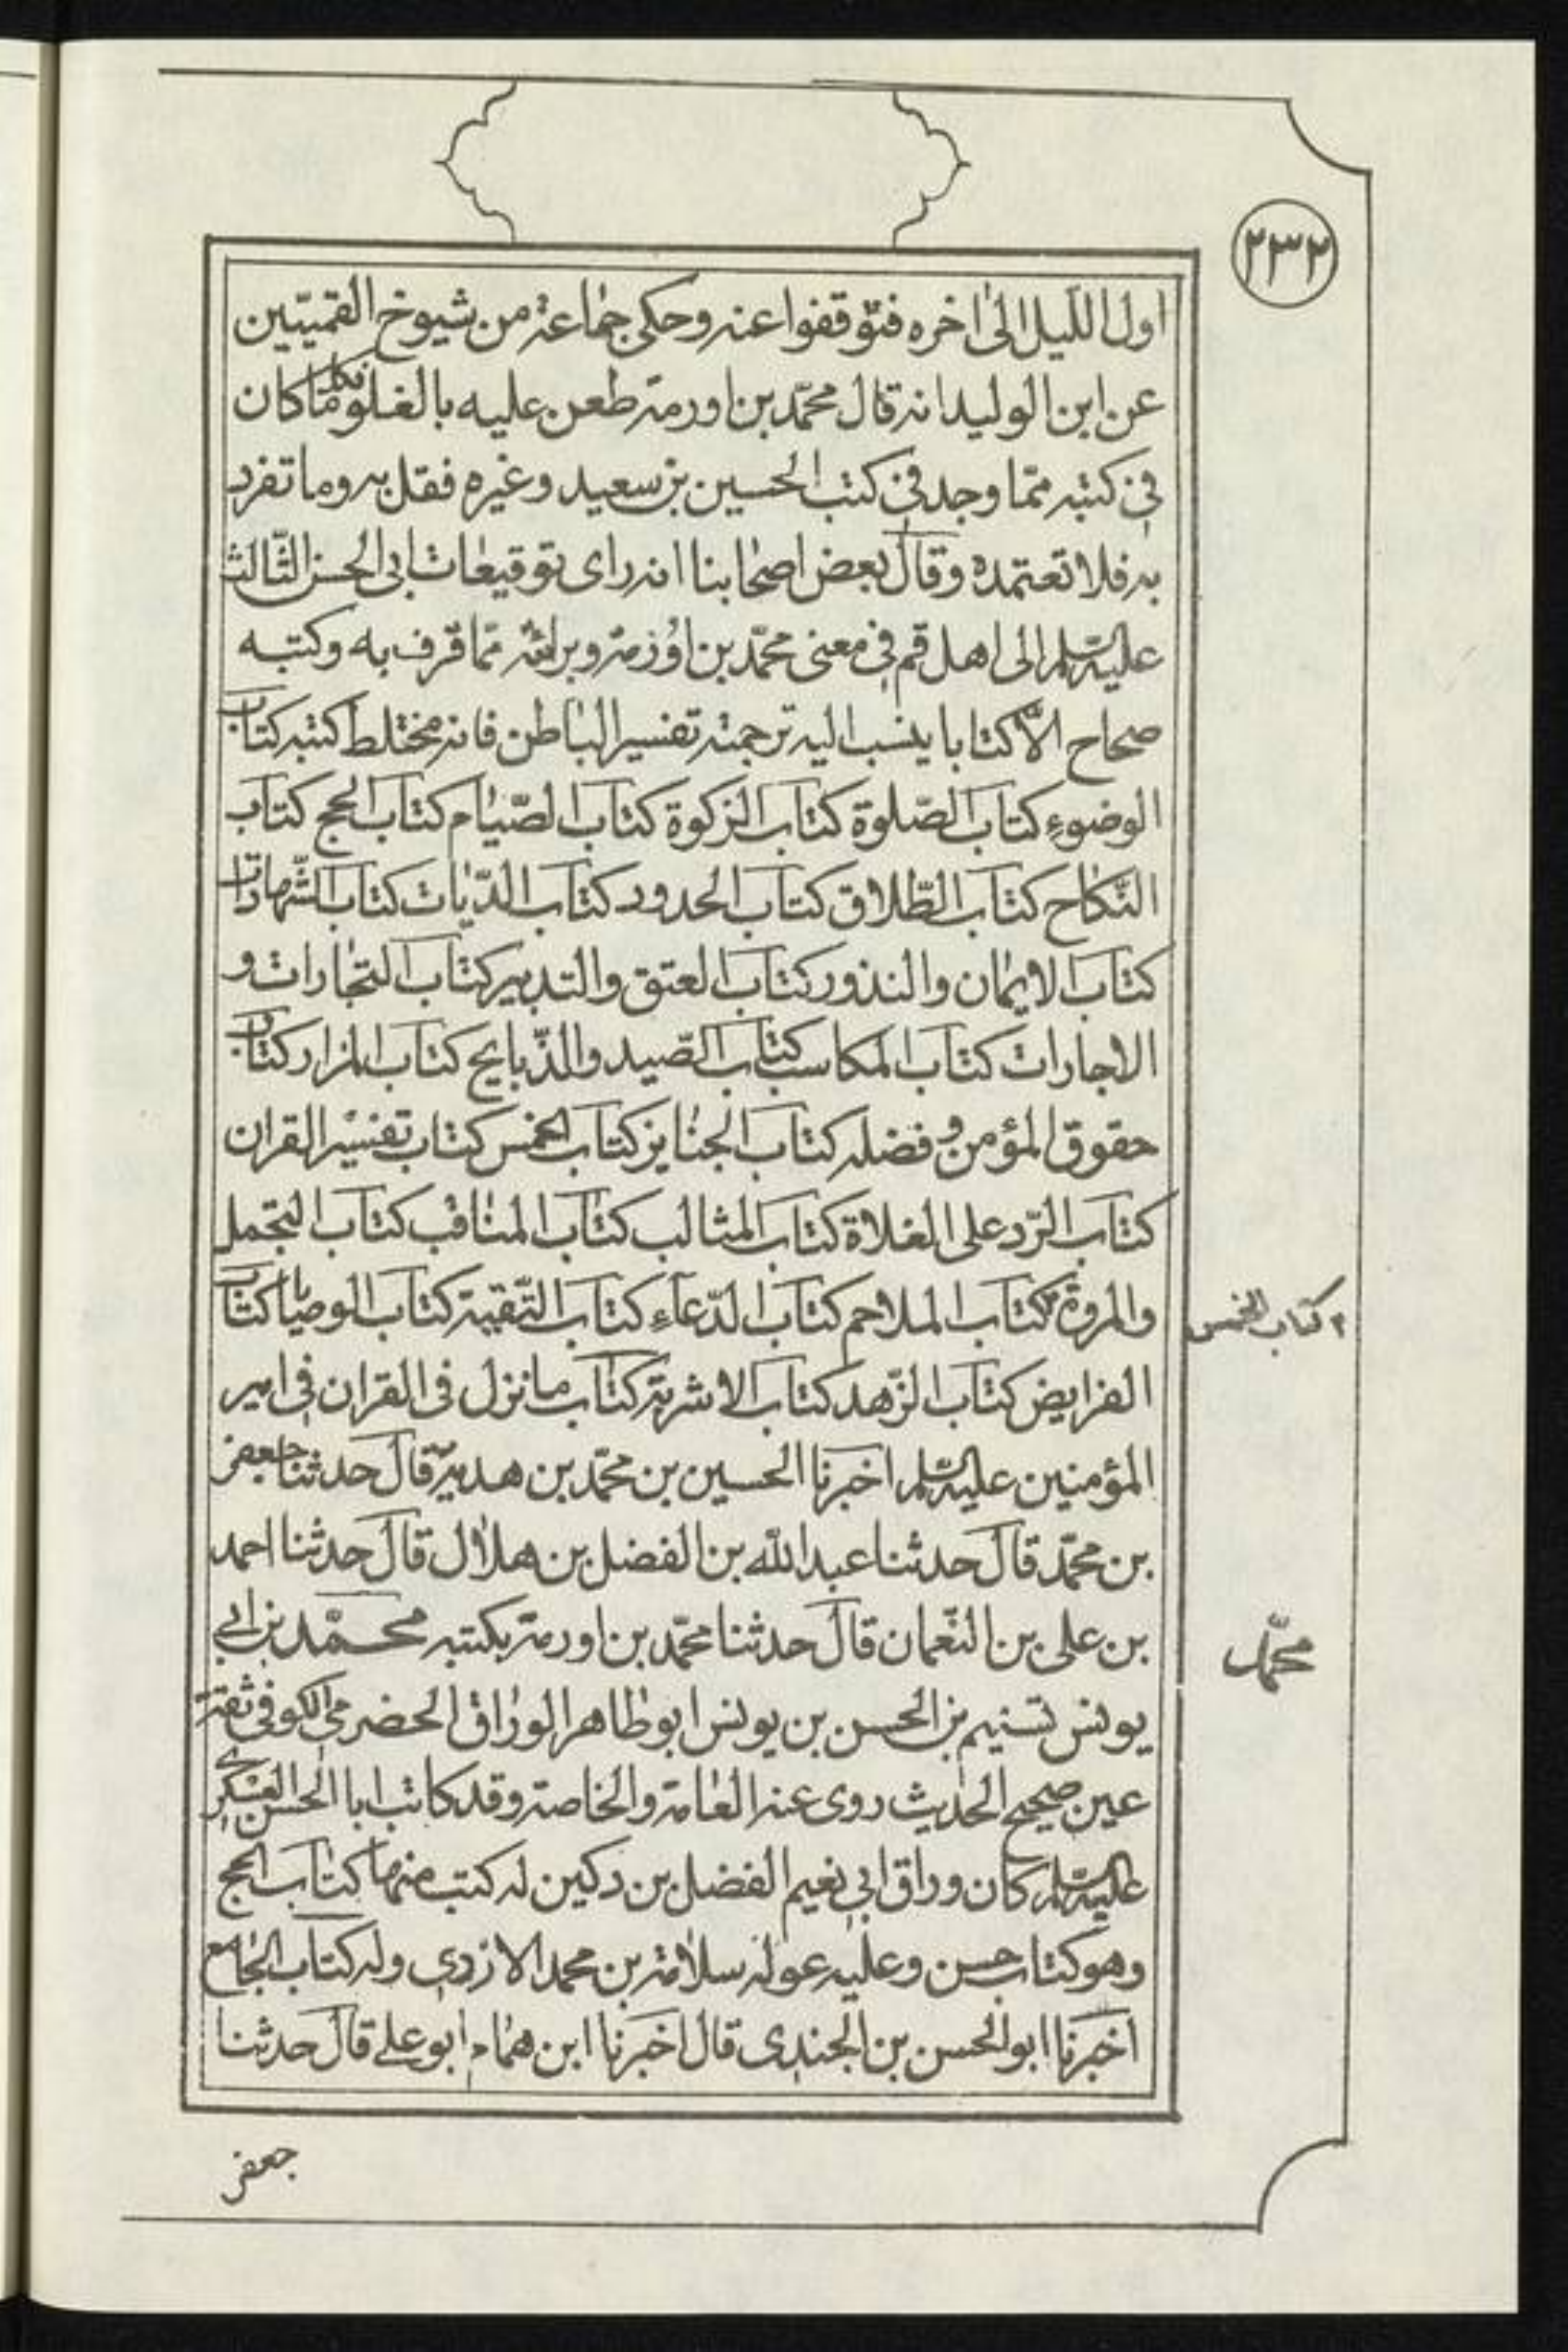 ٢٣٢
اول اللّيل الىٰ اخره فتوقفوا عنه وحكى جماعة من شيوخ القميّين
عن ابن الوليد انه قال محمّد بن اورمة طعن عليه بالغلو فكلما كان
فى كتبه ممّا وجد فى كتب الحسين بن سعيد وغيره فقل به وما تفرد
به فلا تعتمده وقال بعض اصحابنا انه راى توقيعات ابى الحسن الثّالث
عليه السّلم الى اهل قم فى معنى محمّد بن اورمة وبرائته ممّا قرف به وكتبه
صحاح الّا كتابا ينسب اليه ترجمته تفسير الباطن فانه مختلط كتبه كتاب
الوضوء كتاب الصّلوة كتاب الزكوة كتاب الصّيام كتاب الحج كتاب
النّكاح كتاب الطّلاق كتاب الحدود كتاب الدّيات كتاب الشّهادات
كتاب الايمان والنذور كتاب العتق والتدبير كتاب التجارات و
الاجارات كتاب المكاسب كتاب الصّيد والذّبايح كتاب المزار كتاب
حقوق المؤمن و فضله كتاب الجنايز كتاب الخمس كتاب تفسير القران
كتاب الرّد على الغلاة كتاب المثالب كتاب المناقب كتاب التجمل
والمروة كتاب الملاحم كتاب الدّعآء كتاب التّقية كتاب الوصايا كتاب
كتاب الخمس
الفرايض كتاب الزّهد كتاب الاشربة كتاب ما نزل فى القران فى امير
المؤمنين عليه السّلم اخبرنا الحسين بن محمّد بن هدية قال حدثنا جعفر
بن محمّد قال حدثنا عبد اللّه بن الفضل بن هلال قال حدثنا احمد
بن على بن النّعمان قال حدثنا محمّد بن اورمة بكتبه محمّد بن ابى
محمّد
يونس تسنيم بن الحسن بن يونس ابو طاهر الوراق الحضرمى الكوفى ثقة
عين صحيح الحديث روى عنه العامة والخاصة وقد كاتب ابا الحسن العسكرى
عليه السّلم كان وراق ابى نعيم الفضل بن دكين له كتب منها كتاب الحج
وهو كتاب حسن وعليه عوله سلامة بن محمد الازدى وله كتاب الجامع
اخبرنا ابو الحسن بن الجندى قال اخبرنا ابن همام ابو على قال حدثنا
جعفر